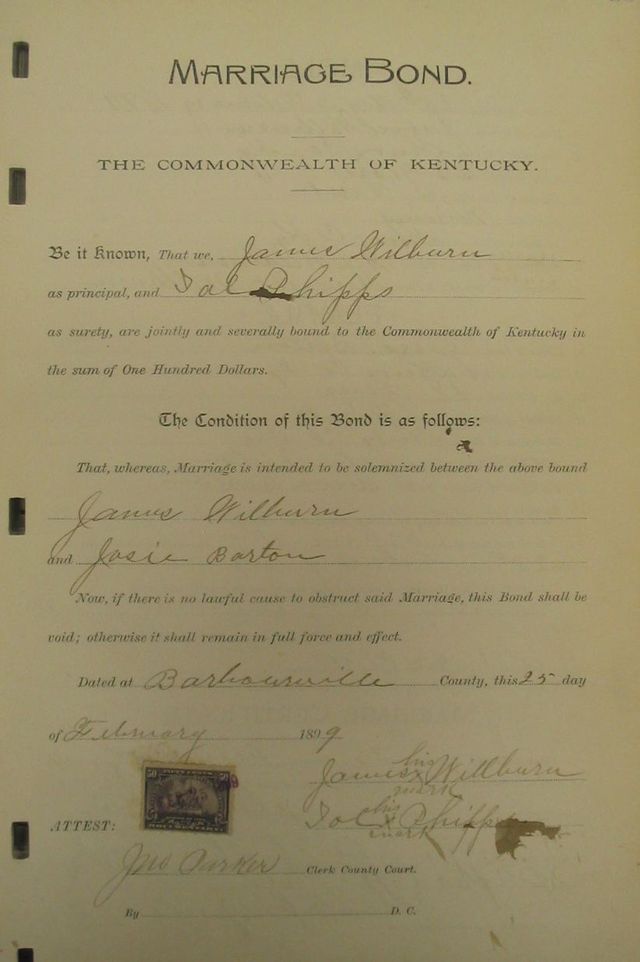 MARRIAGE BOND.
THE COMMONWEALTH OF KENTUCKY.
Be it Known, That we, James Wilburn
as principal, and Sol Phipps
as surety, are jointly and severally bound to the Commonwealth of Kentucky in
the sum of One Hundred Dollars.
The Condition of this Bond is as follows:
That, whereas, Marriage is intended to be solemnized between the above bound
James Wilburn
and Josie Barton
Now, if there is no lawful cause to obstruct said Marriage, this Bond shall be
void; otherwise it shall remain in full force and effect.
Dated at Barbourville County, this 25 day
of February 1899
his
James x Willburn
mark
his
ATTEST: Sol x Phipps
mark
Jno Parker Clerk County Court.
By D. C.